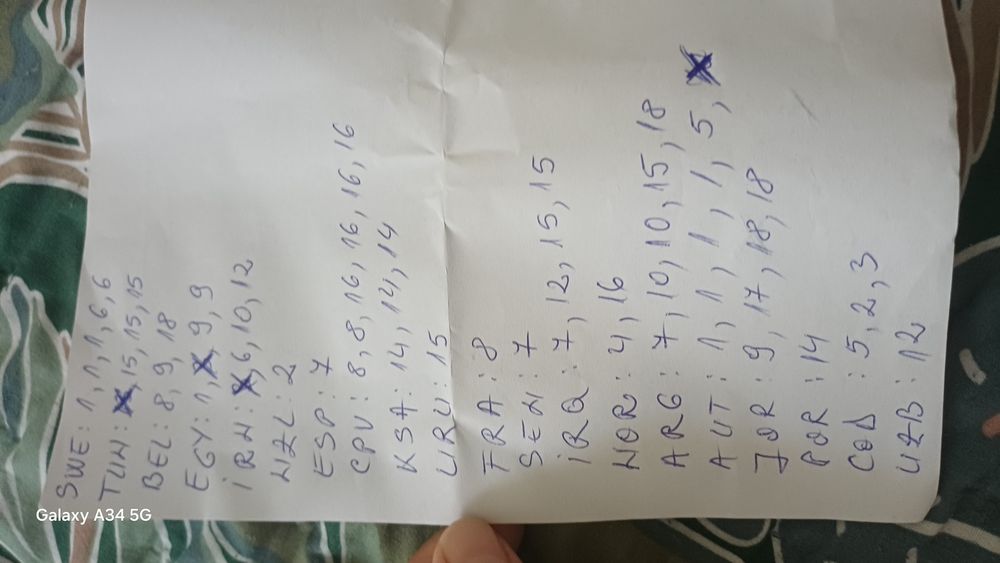 SWE: 1, 1, 1, 6, 6
TUN: 15, 15, 15
BEL: 8, 9, 18
EGY: 1, 9, 9
iRN: 6, 10, 12
NZL: 2
ESP: 7
CPV: 8, 8, 16, 16, 16, 16
KSA: 14, 14, 14
URU: 15
FRA: 8
SEN: 7
iRQ: 7, 12, 15, 15
NOR: 4, 16
ARG: 7, 10, 10, 15, 18
AUT: 1, 1, 1, 1, 5,
JOR: 9, 17, 18, 18
POR: 14
COD: 5, 2, 3
UZB: 12
Galaxy A34 5G